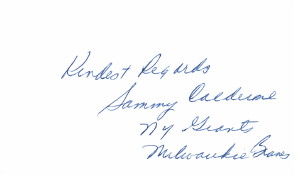 Kindest Regards
Sammy Calderone
NY Giants
Milwaukie Braves